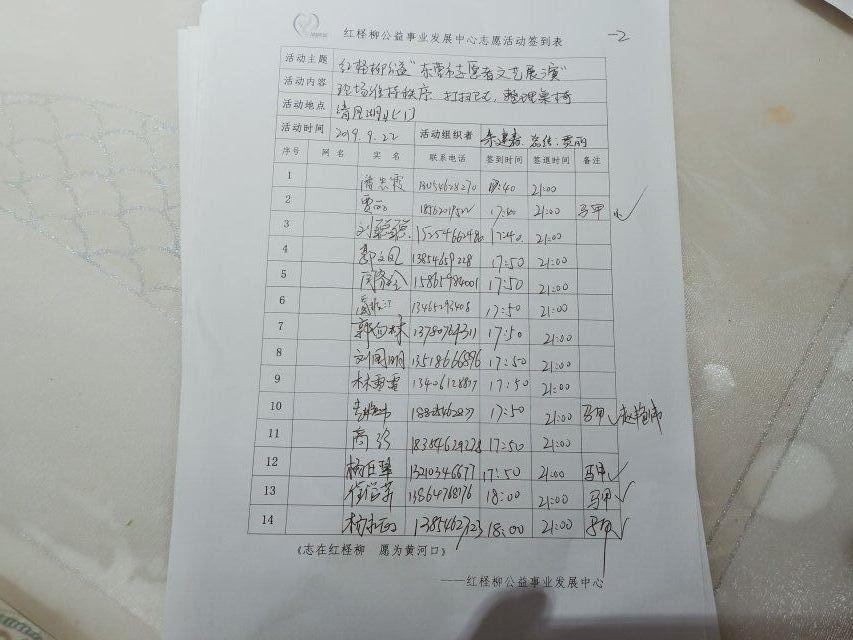 红柽柳公益事业发展中心志愿活动签到表 -2
活动主题 红柽柳公益"东营市志愿者文艺展演"
活动内容 现场维持秩序 打扫卫生,整理桌椅
活动地点 清风湖北门
活动时间 2019.9.22 活动组织者 总结:贾丽
序号 网名 实名 联系电话 签到时间 签退时间 备注
1 潘忠霞 17:40 21:00
2 贾丽 17:40 21:00 马甲 ✓
3 刘聪聪 15254662486 17:40 21:00
4 郭文凤 13854659228 17:50 21:00
5 15865984001 17:50 21:00
6 13465293408 17:50 21:00
7 郭向林 13780764311 17:50 21:00
8 刘国明 13518666896 17:50 21:00
9 林雪雷 13406128817 17:50 21:00
10 17:50 21:00 马甲 ✓ 赵艳伟
11 高珍 18384629228 17:50 21:00
12 13210346677 17:50 21:00 马甲 ✓
13 13864768176 18:00 21:00 马甲 ✓
14 18:00 21:00 马甲 ✓
《志在红柽柳 愿为黄河口》
——红柽柳公益事业发展中心